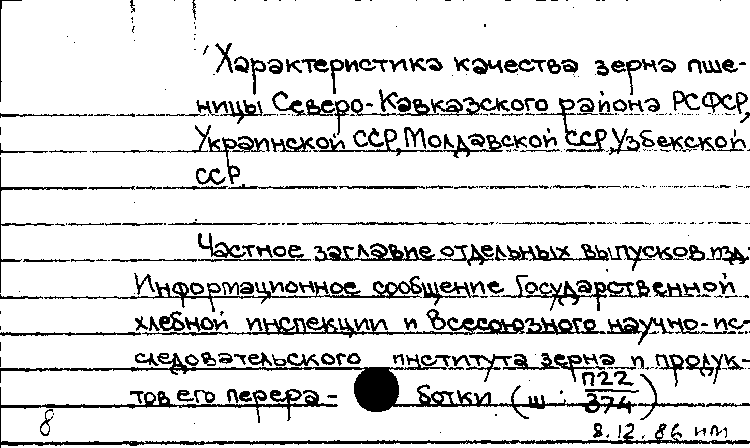 Характеристика качества зерна пше-
ницы Северо-Кавказского района РСФСР,
Украинской ССР, Молдавской ССР, Узбекской
ССР.
Частное заглавие отдельных выпусков изд.:
Информационное сообщение Государственной
хлебной инспекции и Всесоюзного научно-ис-
следовательского института зерна и продук-
тов его перера- ботки. (ш : П22/374)
8 8.12.86 нп